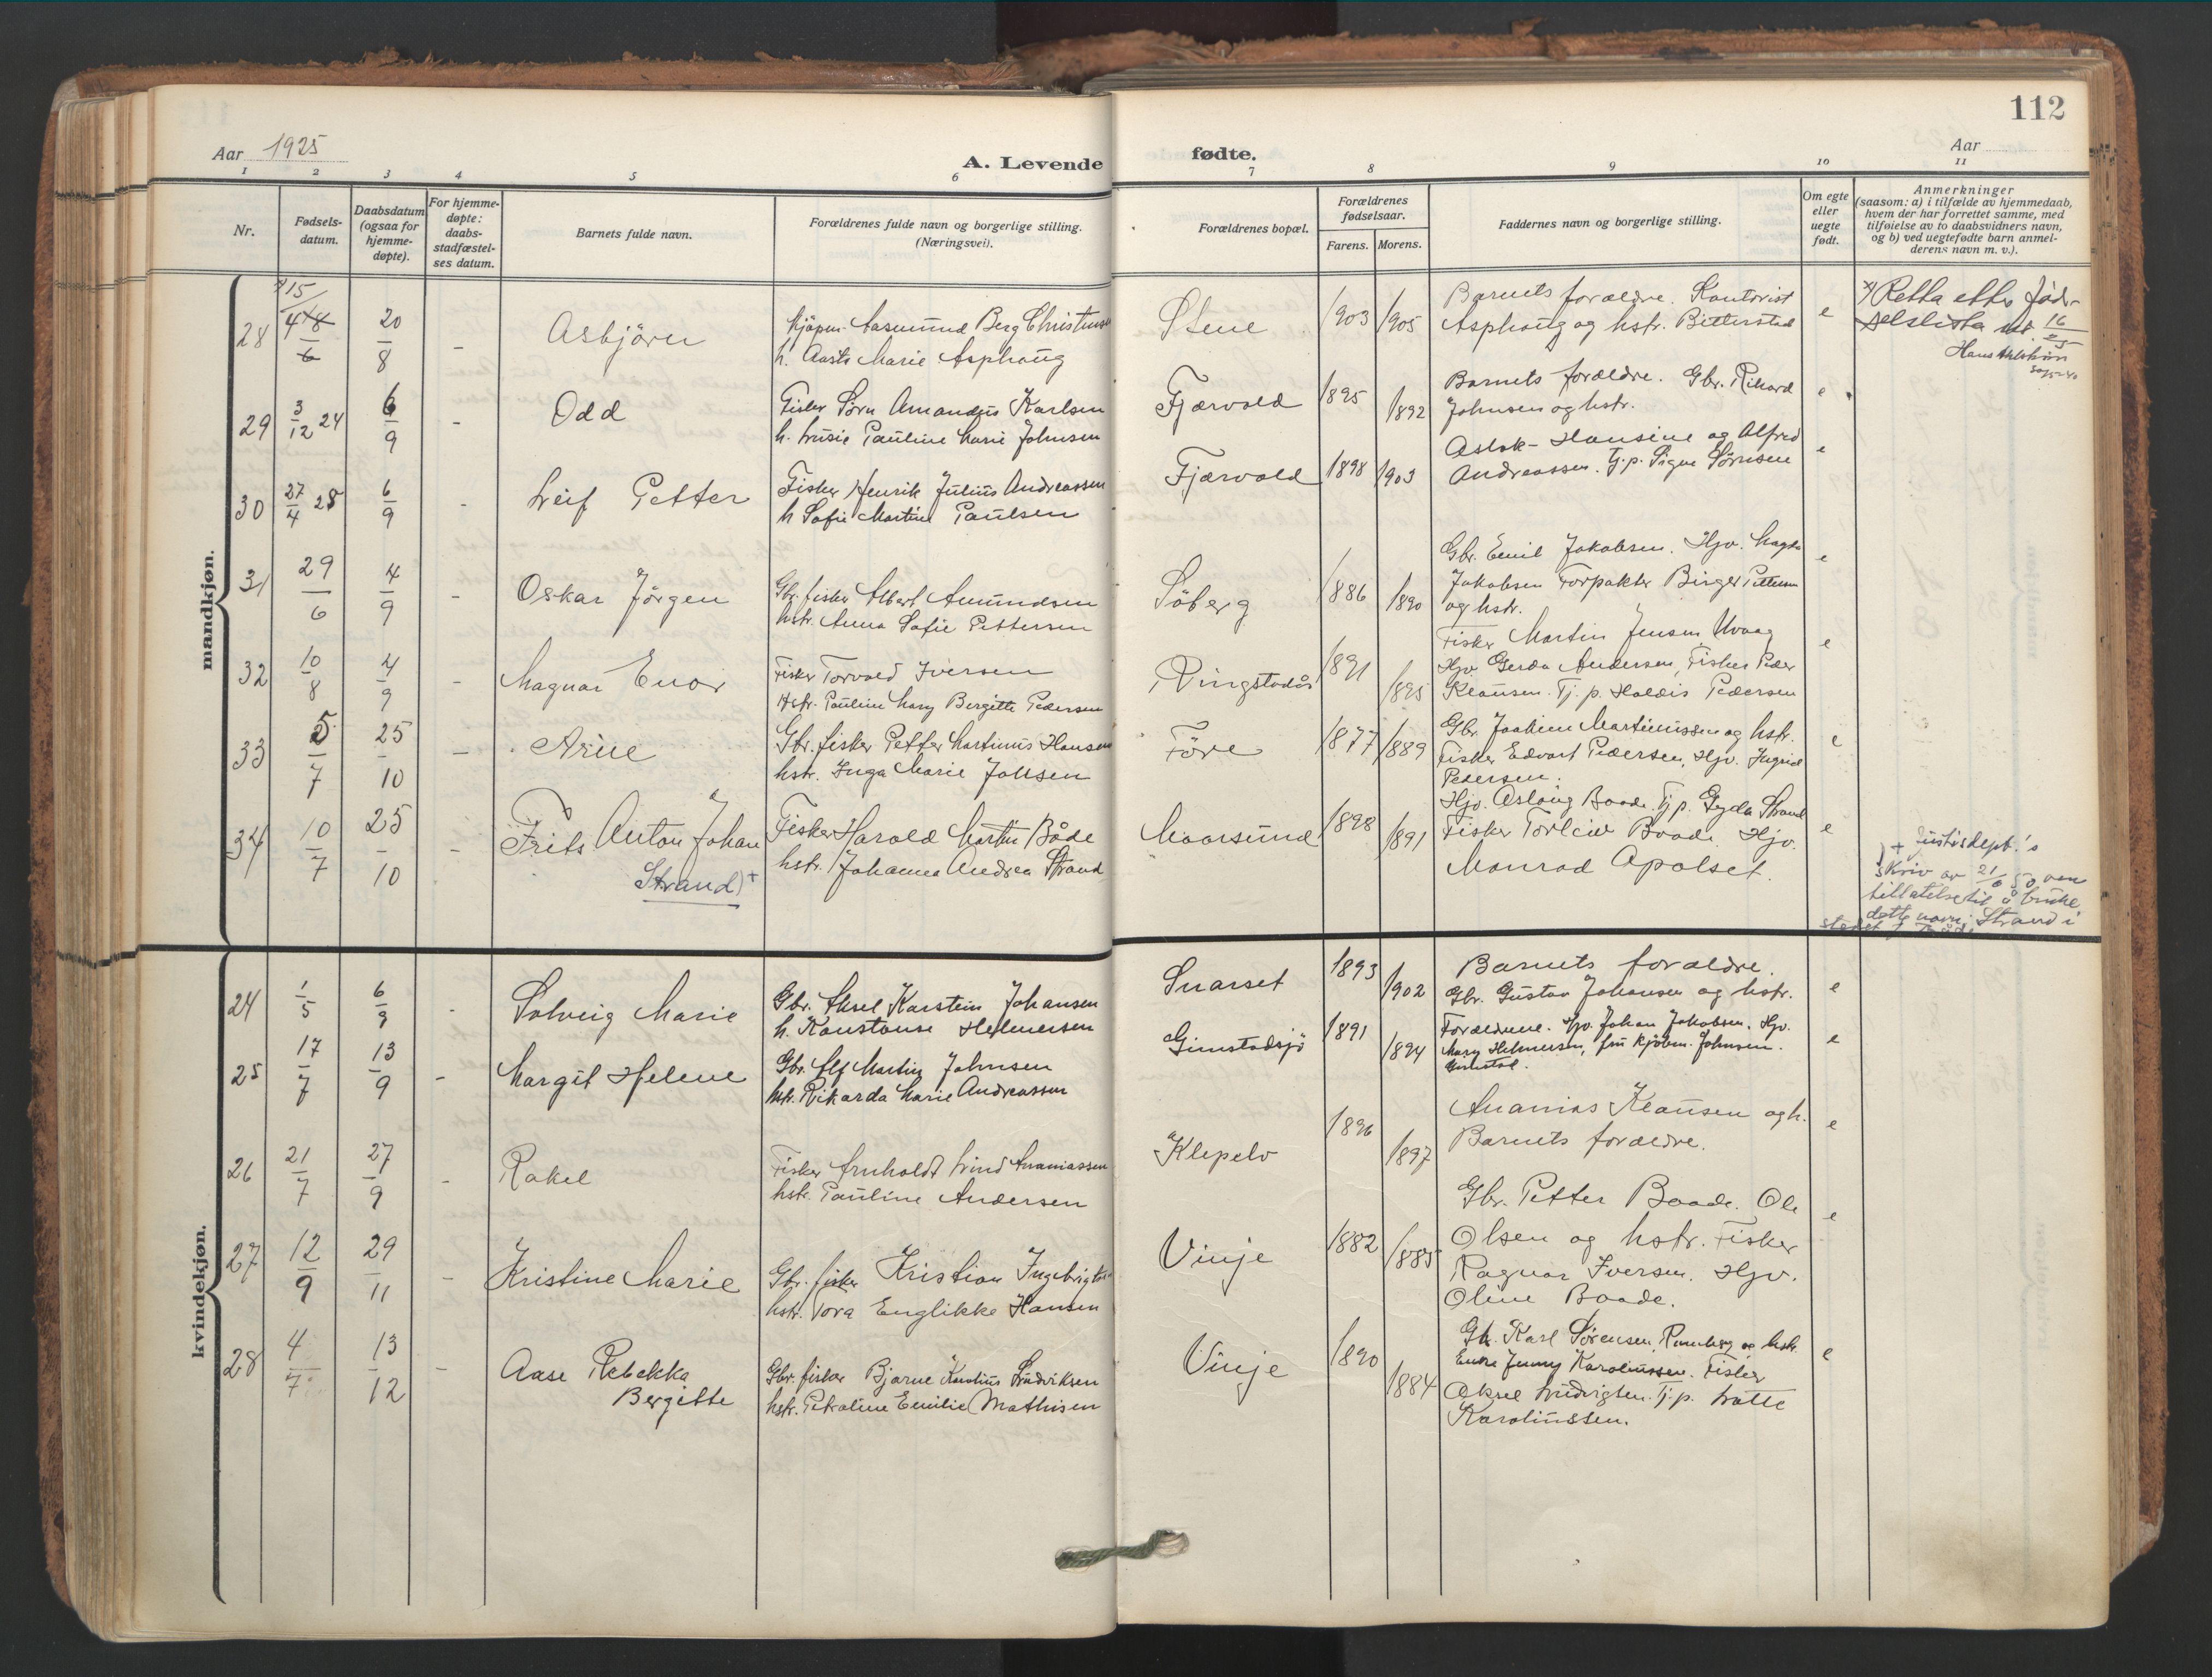 112
Aar 1925
A. Levende
fødte.
Aar
1 2 3 4 5 6 7 8 9 10 11
Nr.
Fødsels-
datum.
Daabsdatum
(ogsaa for
hjemme-
døpte).
For hjemme-
døpte:
daabs-
stadfæstel-
ses datum.
Barnets fulde navn.
Forældrenes fulde navn og borgerlige stilling.
(Næringsvei).
Forældrenes bopæl.
Forældrenes
fødselsaar.
Farens. Morens.
Faddernes navn og borgerlige stilling.
Om egte
eller
uegte
født.
Anmerkninger
(saasom: a) i tilfælde av hjemmedaab,
hvem der har forrettet samme, med
tilføielse av to daabsvidners navn,
og b) ved uegtefødte barn anmel-
derens navn m. v.).
mandkjøn.
28 15/6 20/8 - Asbjörn
Kjöpm. Aasmund Berg Christensen
h. Aasta Marie Asphaug
Stene 1903 1905
Barnets forældre. Kontorist
Asphaug og hstr. Bitterstad
e
x) Retta etter föd-
selslista
29 3/12 24 6/9 - Odd
Fisker Sörn Amandus Karlsen
h. Lusie Pauline Marie Johnsen
Fjærvold 1895 1892
Barnets forældre. Gbr. Rikard
Johnsen og hstr.
e
30 27/4 25 6/9 - Leif Petter
Fisker Henrik Julius Andreassen
h Sofie Martine Paulsen
Fjærvold 1898 1903
Aslak- Hansine og Alfred
Andreassen. Tj.p. Signe Sörnsen
e
31 29/6 4/9 - Oskar Jörgen
Gbr. fisker Albert Amundsen
hstr. Anna Sofie Pettersen
Söberg 1886 1890
Gbr. Emil Jakobsen. Hjv. Magda
Jakobsen Forpakter Birger Pettersen
og hstr.
e
32 10/8 4/9 - Magnar Enor
Fisker Torvald Iversen
Hstr. Pauline Mary Bergitte Pedersen
Ringstadås 1891 1895
Fisker Martin Jensen Uvaag
Hjv. Gerda Andersen, Fisker Peder
Klausen. Tj. p. Haldis Pedersen
e
33 5/7 25/10 - Arne
Gbr. fisker Petter Martinus Hansen
hstr. Inga Marie Johsen
Före 1877 1889
Gbr. Joakim Martinussen og hstr.
Fisker Edvart Pedersen, Hjv. Ingrid
Pedersen.
e
34 10/7 25/10 - Frits Anton Johan
Strand)+
Fisker Harald Martin Både
hstr. Johanna Andrea Strand
Maarsund 1898 1891
Hjv. Aslaug Baade. Tj p. Gyda Strand
Fisker Torleiv Baade. Hjv.
Monrad Apolset.
e
)+ Justisdept.'s
skriv av
tillatelse til å bruke
dette navn; Strand i
stedet f.
kvindekjøn.
24 1/5 6/9 - Solveig Marie
Gbr. Aksel Karstein Johansen
h. Konstanse Helmersen
Snarset 1893 1902
Barnets forældre.
Gbr. Gustav Johansen og hstr.
e
25 17/7 13/9 - Margit Helene
Gbr. Alf Martin Johnsen
hstr. Rikarda Marie Andreassen
Gimstadsjö 1891 1894
Forældrene. Hjv. Johan Jakobsen. Hjv.
Mary Helmersen, fru Kjöbm. Johnsen.
Gimstad.
e
26 21/7 27/9 - Rakel
Fisker Arnholdt Lind Ananiassen
hstr. Pauline Andersen
Klepelv 1896 1897
Ananias Klausen og h.
Barnets forældre.
e
27 12/9 29/11 - Kristine Marie
Gbr. fisker Kristian Ingebrigtsen
hstr. Tora Englikke Hansen
Vinje 1882 1885
Gbr. Petter Baade. Ole
Olsen og hstr. Fisker
Ragnar Iversen. Hjv.
Oline Baade.
e
28 4/7 13/12 - Aase Rebekka
Bergitte
Gbr. fisker Bjarne Karolius Ludviksen
hstr. Petroline Emilie Mathisen
Vinje 1890 1884
Gb. Karl Sörensen, Ramberg og hstr.
Enke Jenny Karolinssen. Fisker
Aksel Ludvigsen. Tj. p. Lotte
Karolinssen.
e